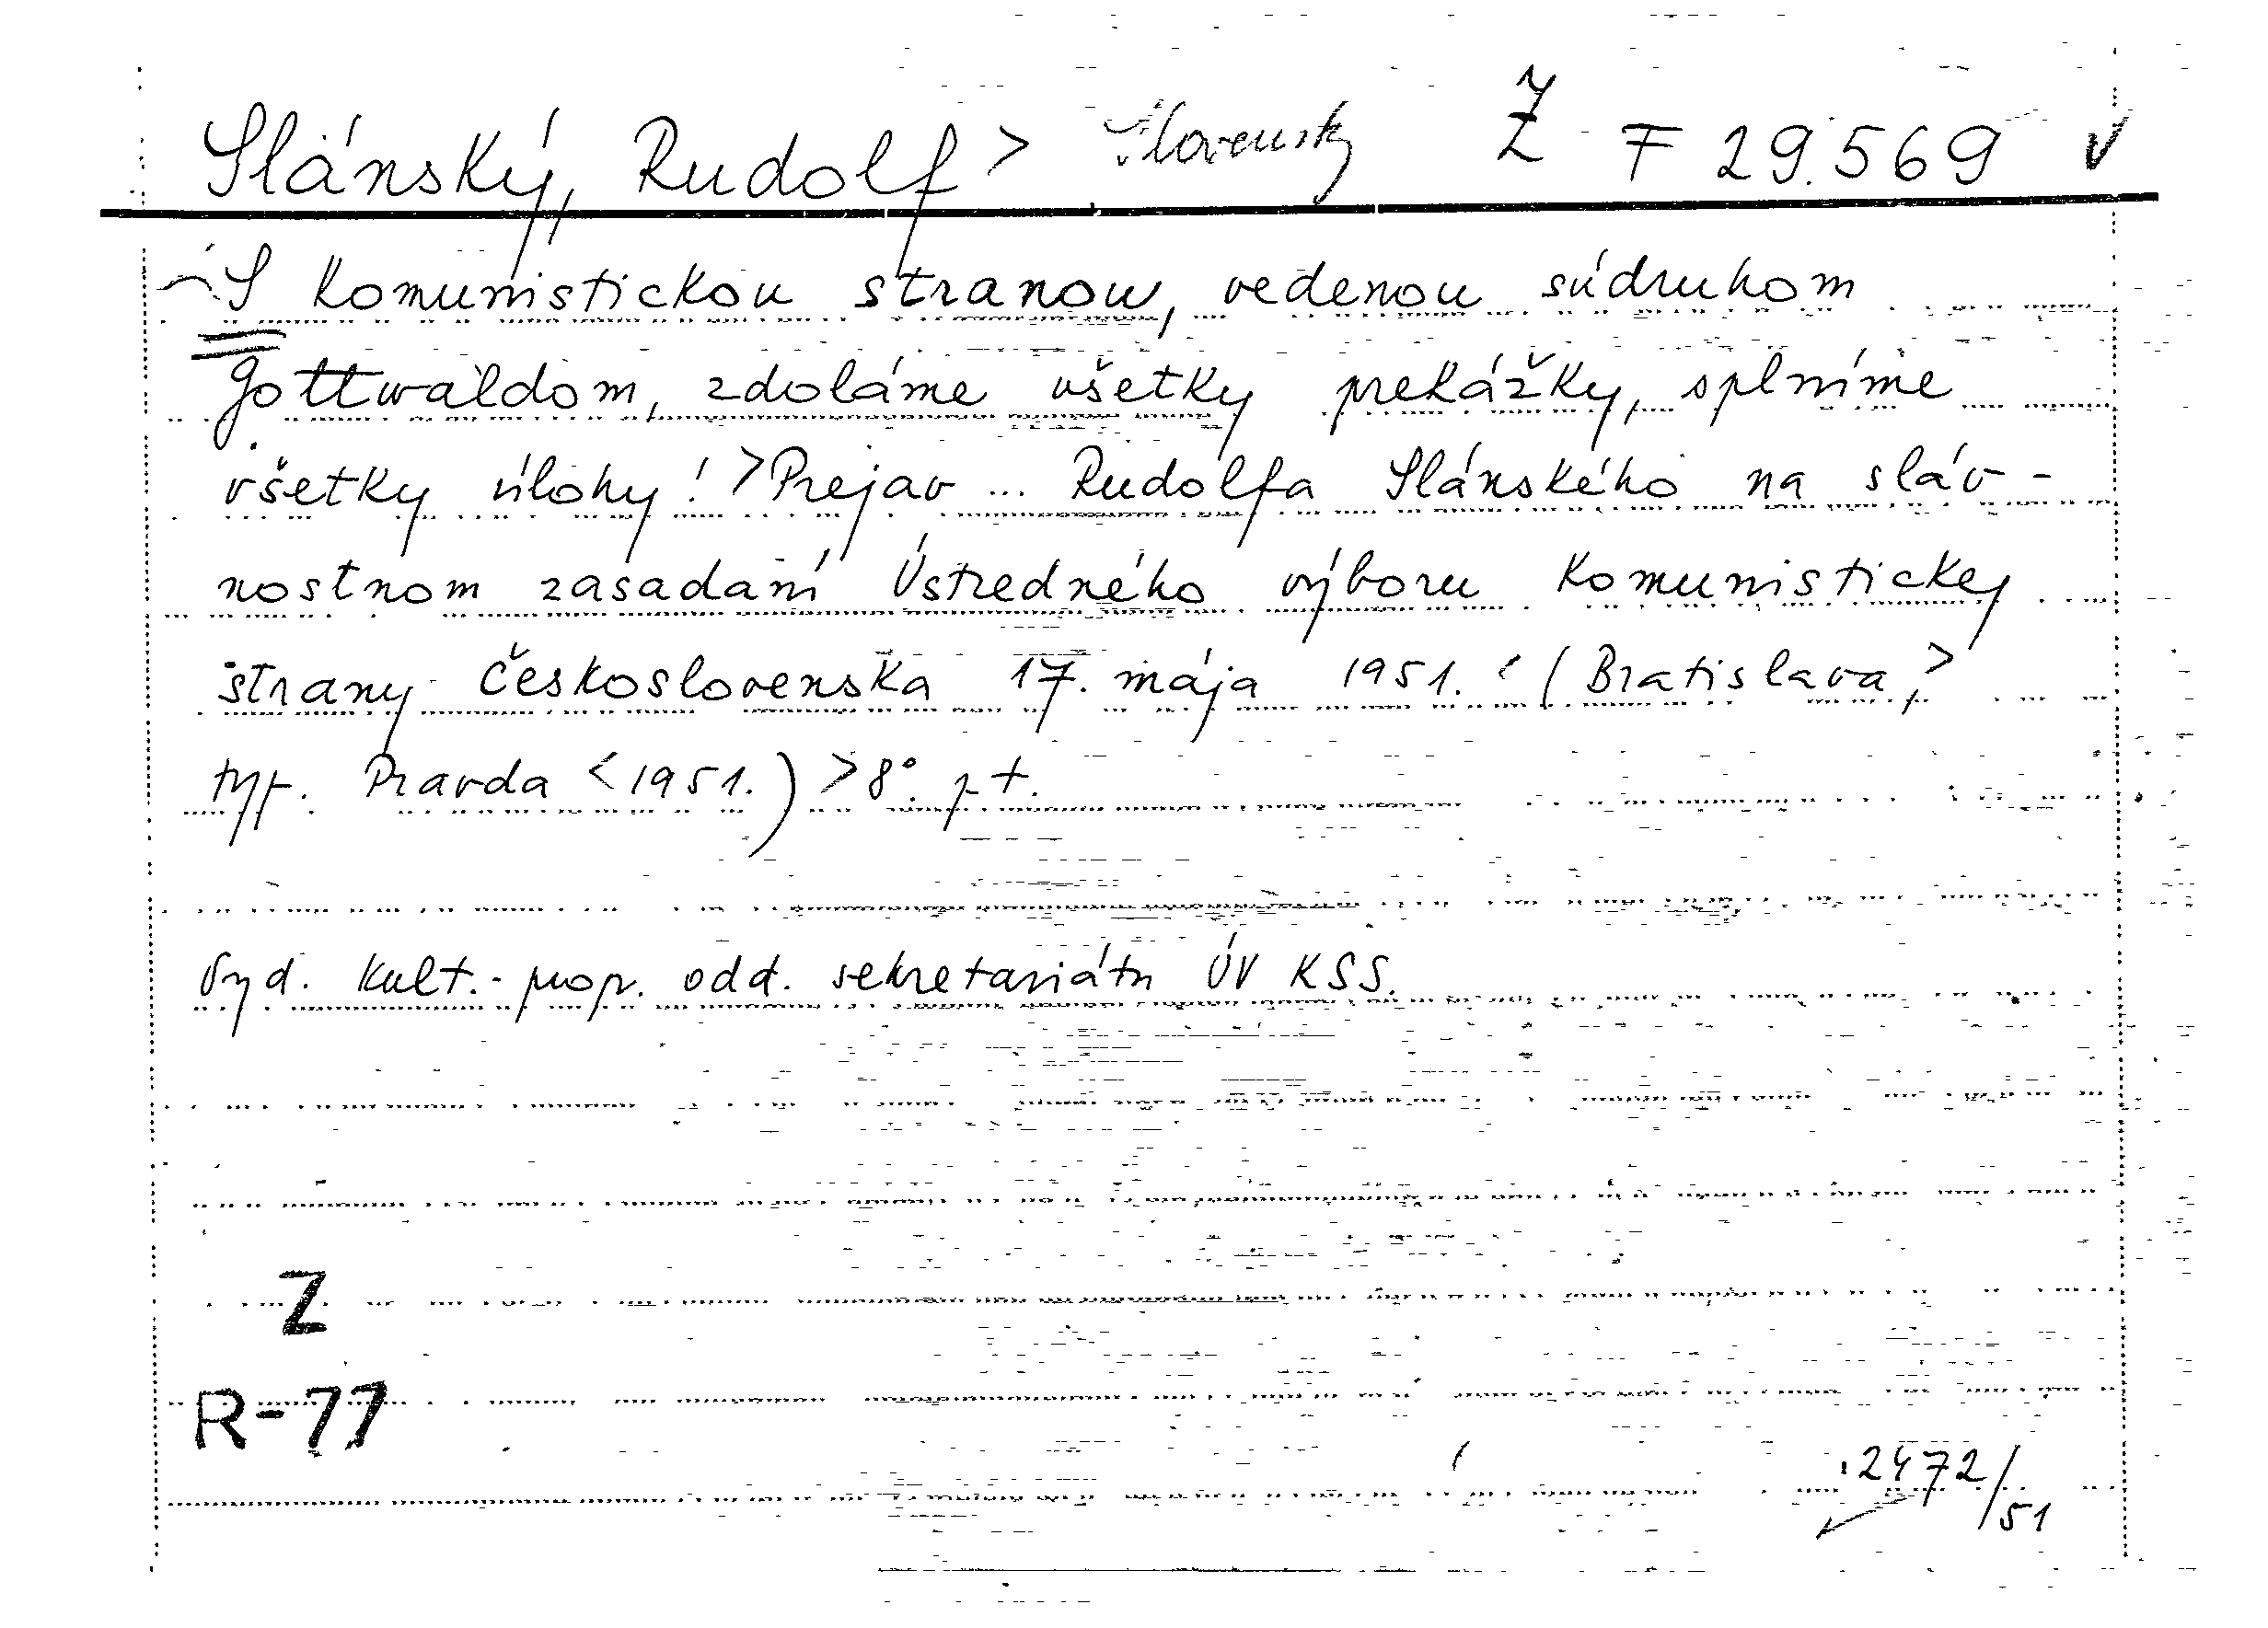 Slánský, Rudolf > Slovensky Ž F 29.569 v
S Komunistickou stranou, vedenou súdruhom
Gottwaldom, zdoláme všetky prekážky, splníme
všetky úlohy! > Prejav ... Rudolfa Slánského na sláv-
nostnom zasadaní Ústredného výboru Komunistickej
strany Československa 17. mája 1951. (Bratislava, >
typ. Pravda < 1951.) > 8°.
Vyd. Kult.-prop. odd. sekretariátu ÚV KSS.
Z
R-77
2472/51